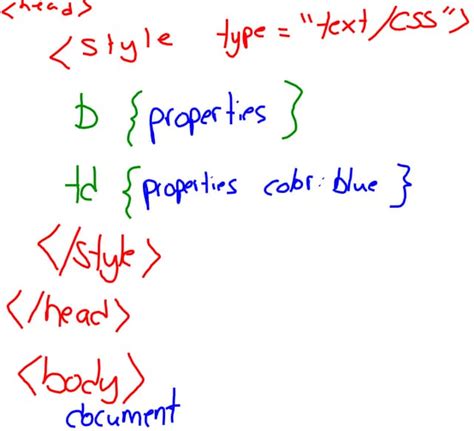 <head>
<style type="text/css">
b {properties}
td {properties color:blue}
</style>
</head>
<body>
document